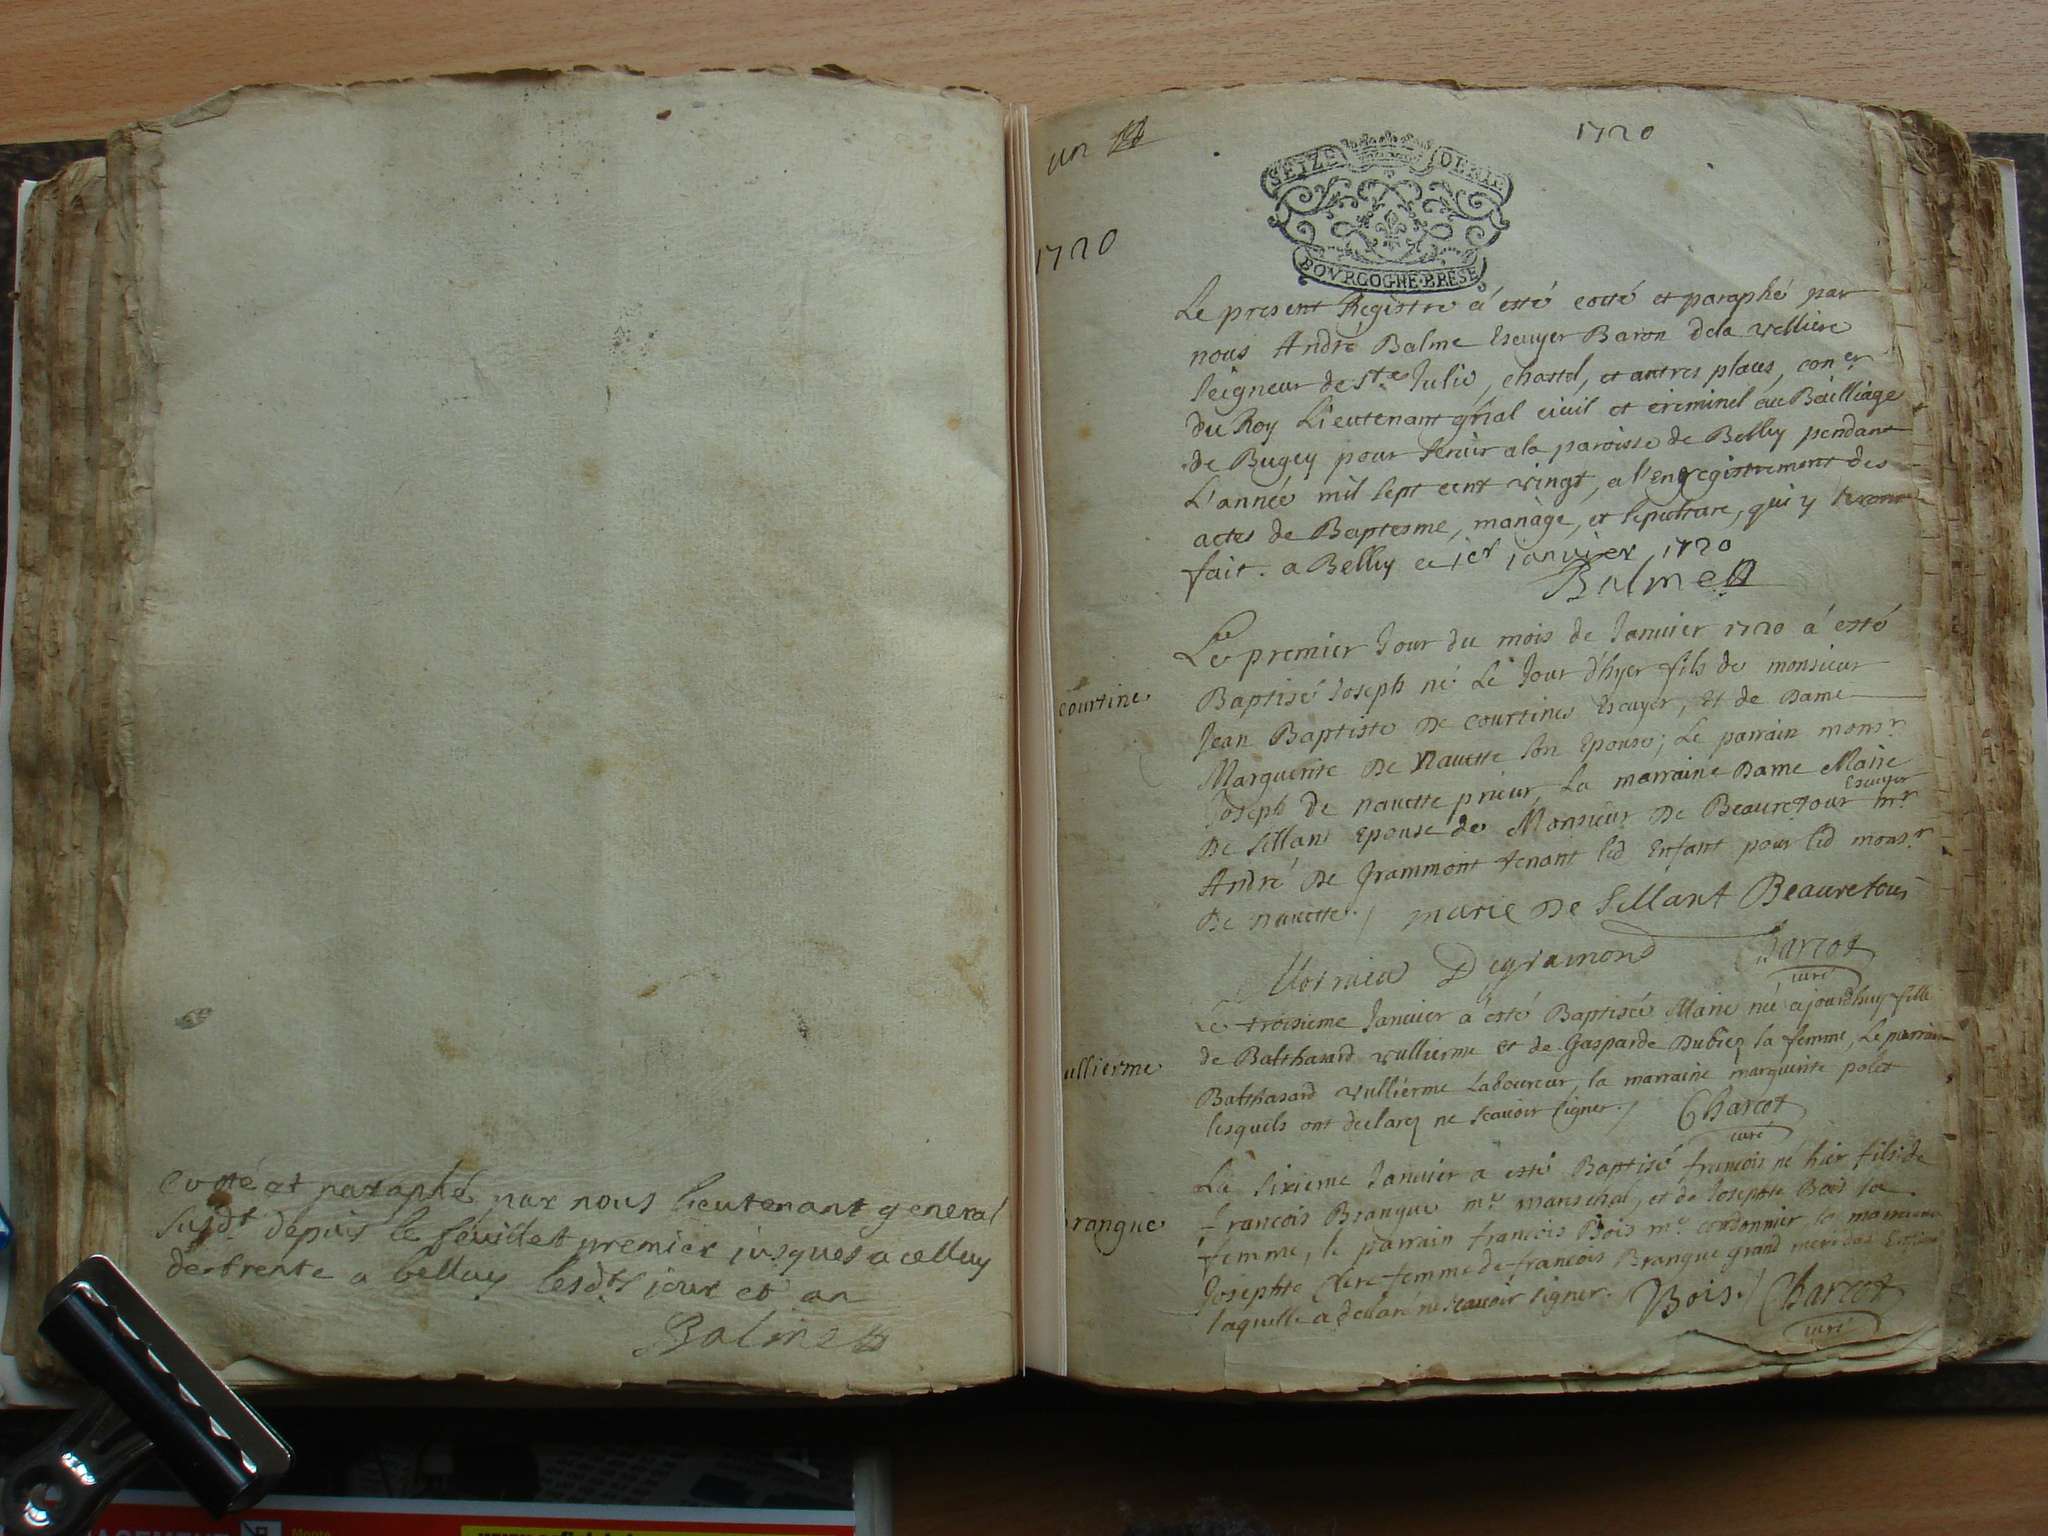 Cotté et paraphé par nous lieutenant general
susdt. depuis le feuillet premier jusques a celluy
de trente a belluy lesdts jour et an
Balme
un
1720
1720
SEIZE DENIE
BOVRGOGNE·BRESE
Le present Registre a esté cotté et paraphé par
nous André Balme Escuyer Baron dela velliere
seigneur de Ste Julie, chastel, et autres places, coner
du Roy Lieutenant gñal civil et criminel au Bailliage
de Bugey pour servir a la paroisse de Belley pendant
L'année mil sept cent vingt, a l'enregistrement des
actes de Baptesme, mariage, et sepulture, qui y seront
fait. a Belley ce 1er janvier 1720
Balme
courtine
Le premier Jour du mois de Janvier 1720 a esté
Baptisé Joseph né Le Jour d'hyer fils de monsieur
Jean Baptiste De courtines Escuyer, Et de Dame
Marguerite De Navette son Epouse; Le parrain monsr.
Joseph de navette prieur La marraine Dame Marie
De Sillans Epouse de Monsieur De Beauretour Escuyer mr
André De Grammont tenant led Enfant pour led monsr.
De navette./ marie De Sillant Beauretour
Degramond Charcot
curé
ullierme
Le troisieme Janvier a esté Baptisée Marie née ajourdhuy fille
de Balthasard vullierme et de Gasparde Dubiez sa femme, Le parrain
Balthasard vullierme Laboureur, la marraine marguerite polet
lesquels ont declarez ne scavoir signer./ Charcot
curé
rangue
Le sixieme Janvier a esté Baptisé francois né hier fils de
francois Brangue mr. mareschal, et de Josephte Bois sa
femme, le parrain francois Bois mr. cordonnier, la marraine
Josephte femme de francois Brangue grand
laquelle a declaré ne scavoir signer. Bois./ Charcot
curé